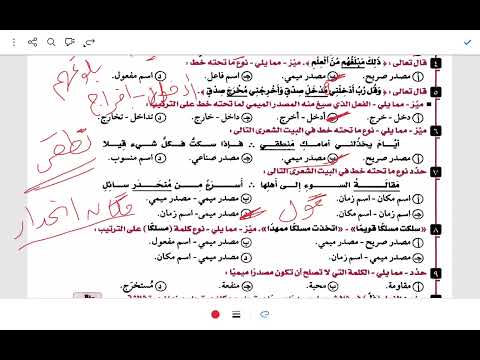 ٤ قال تعالى: ﴿ذَلِكَ مَبْلَغُهُم مِّنَ الْعِلْمِ﴾. ميّز - مما يلي - نوع ما تحته خط:
أ مصدر صريح. ب مصدر ميمي. ج اسم فاعل. د اسم مفعول.
٥ قال تعالى: ﴿وَقُل رَّبِّ أَدْخِلْنِي مُدْخَلَ صِدْقٍ وَأَخْرِجْنِي مُخْرَجَ صِدْقٍ﴾
■ ميّز - مما يلي - الفعل الذي صيغ منه المصدر الميمي لما تحته خط على الترتيب:
أ دخل - خرج. أدخل - أخرج. ج داخل - خارج. د تداخل - تخارج.
٦ ميّز - مما يلي - نوع ما تحته خط في البيت الشعرى التالى:
أيّامَ يخذلُنى أمامَكِ مَنطقي ∴ فإذا سكتُّ فكلُّ شيءٍ قيلا
أ مصدر صريح. مصدر ميمي. ج مصدر صناعي. د اسم منسوب.
٧ حدّد نوع ما تحته خط في البيت الشعرى التالى:
مَقالةُ السوءِ إلى أهلِها ∴ أسرعُ مِن مُنْحَدَرٍ سائلِ
أ اسم مكان - اسم زمان. ب مصدر ميمي - مصدر ميمي.
ج مصدر ميمي - اسم مكان. د مصدر ميمي - اسم زمان.
٨ «سلكت مسلكًا قويمًا» - «اتخذت مسلكًا ممهدًا». ميّز - مما يلي - نوع كلمة (مسلكًا) على الترتيب:
أ مصدر صريح - مصدر ميمي. ب مصدر ميمي - اسم زمان.
ج اسم مكان - اسم زمان. د مصدر ميمي - اسم مكان.
٩ حدّد - مما يلي - الكلمة التي لا تصلح أن تكون مصدرًا ميميًا:
أ مقاومة. ب محبة. ج منفعة. د مُستخرَج.
بلوغهم
إدخال - إخراج
نطقى
قول
انحدار